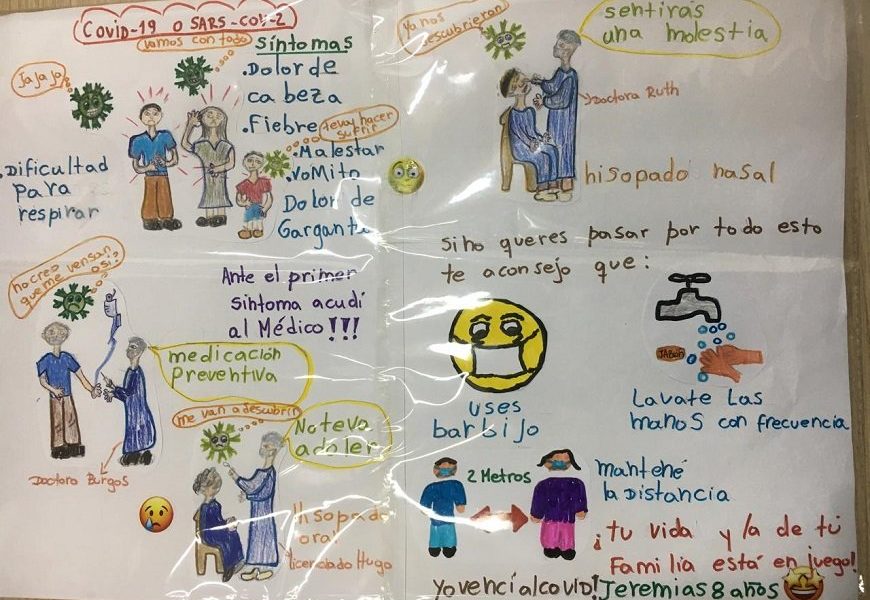 Covid-19 o SARS-CoV-2
vamos con todo
Jajaja
Síntomas
.Dolor de
cabeza
.Fiebre
te voy hacer
sufrir
.Malestar
.Vomito
Dolor de
Garganta
.Dificultad
para
respirar
Ya nos
descubrieron
sentirás
una molestia
Doctora Ruth
hisopado nasal
no creo
que me vensan
osi??
Ante el primer
síntoma acudí
al Médico!!!
medicación
Preventiva
Doctora Burgos
me van a descubrir
No te va
a doler
Hisopado
oral
licenciado Hugo
Si no queres pasar por todo esto
te aconsejo que:
uses
barbijo
JABón
Lavate las
manos con frecuencia
2 Metros
mantené
la Distancia
¡tu vida y la de tú
Familia está en juego!
Yo vencí al covid! Jeremias 8 años